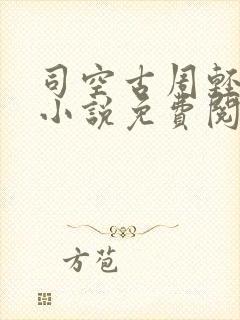 司空古周輕
小說免費閱
方苞